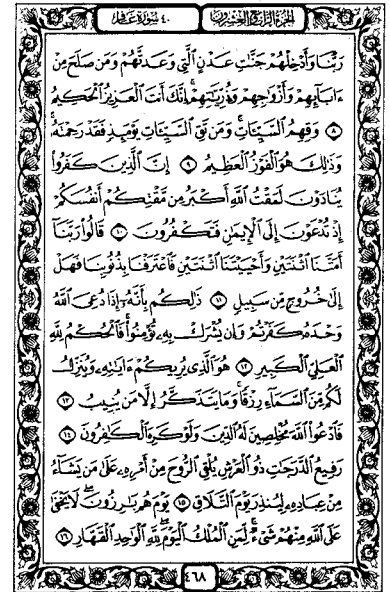 الجزء الرابع والعشرون
٤٠ سورة غافر
رَبَّنَا وَأَدْخِلْهُمْ جَنَّاتِ عَدْنٍ الَّتِي وَعَدتَّهُمْ وَمَن صَلَحَ مِنْ
ءَابَآئِهِمْ وَأَزْوَٰجِهِمْ وَذُرِّيَّٰتِهِمْ إِنَّكَ أَنتَ الْعَزِيزُ الْحَكِيمُ
٨ وَقِهِمُ السَّيِّـَٔاتِ وَمَن تَقِ السَّيِّـَٔاتِ يَوْمَئِذٍ فَقَدْ رَحِمْتَهُۥ
وَذَٰلِكَ هُوَ الْفَوْزُ الْعَظِيمُ ٩ إِنَّ الَّذِينَ كَفَرُوا۟
يُنَادَوْنَ لَمَقْتُ اللَّهِ أَكْبَرُ مِن مَّقْتِكُمْ أَنفُسَكُمْ
إِذْ تُدْعَوْنَ إِلَى الْإِيمَٰنِ فَتَكْفُرُونَ ١٠ قَالُوا۟ رَبَّنَآ
أَمَتَّنَا اثْنَتَيْنِ وَأَحْيَيْتَنَا اثْنَتَيْنِ فَاعْتَرَفْنَا بِذُنُوبِنَا فَهَلْ
إِلَىٰ خُرُوجٍ مِّن سَبِيلٍ ١١ ذَٰلِكُم بِأَنَّهُۥٓ إِذَا دُعِيَ اللَّهُ
وَحْدَهُۥ كَفَرْتُمْ وَإِن يُشْرَكْ بِهِۦ تُؤْمِنُوا۟ فَالْحُكْمُ لِلَّهِ
الْعَلِيِّ الْكَبِيرِ ١٢ هُوَ الَّذِي يُرِيكُمْ ءَايَٰتِهِۦ وَيُنَزِّلُ
لَكُم مِّنَ السَّمَآءِ رِزْقًا وَمَا يَتَذَكَّرُ إِلَّا مَن يُنِيبُ ١٣
فَادْعُوا۟ اللَّهَ مُخْلِصِينَ لَهُ الدِّينَ وَلَوْ كَرِهَ الْكَٰفِرُونَ ١٤
رَفِيعُ الدَّرَجَٰتِ ذُو الْعَرْشِ يُلْقِي الرُّوحَ مِنْ أَمْرِهِۦ عَلَىٰ مَن يَشَآءُ
مِنْ عِبَادِهِۦ لِيُنذِرَ يَوْمَ التَّلَاقِ ١٥ يَوْمَ هُم بَٰرِزُونَ لَا يَخْفَىٰ
عَلَى اللَّهِ مِنْهُمْ شَيْءٌ لِّمَنِ الْمُلْكُ الْيَوْمَ لِلَّهِ الْوَٰحِدِ الْقَهَّارِ ١٦
٤٦٨